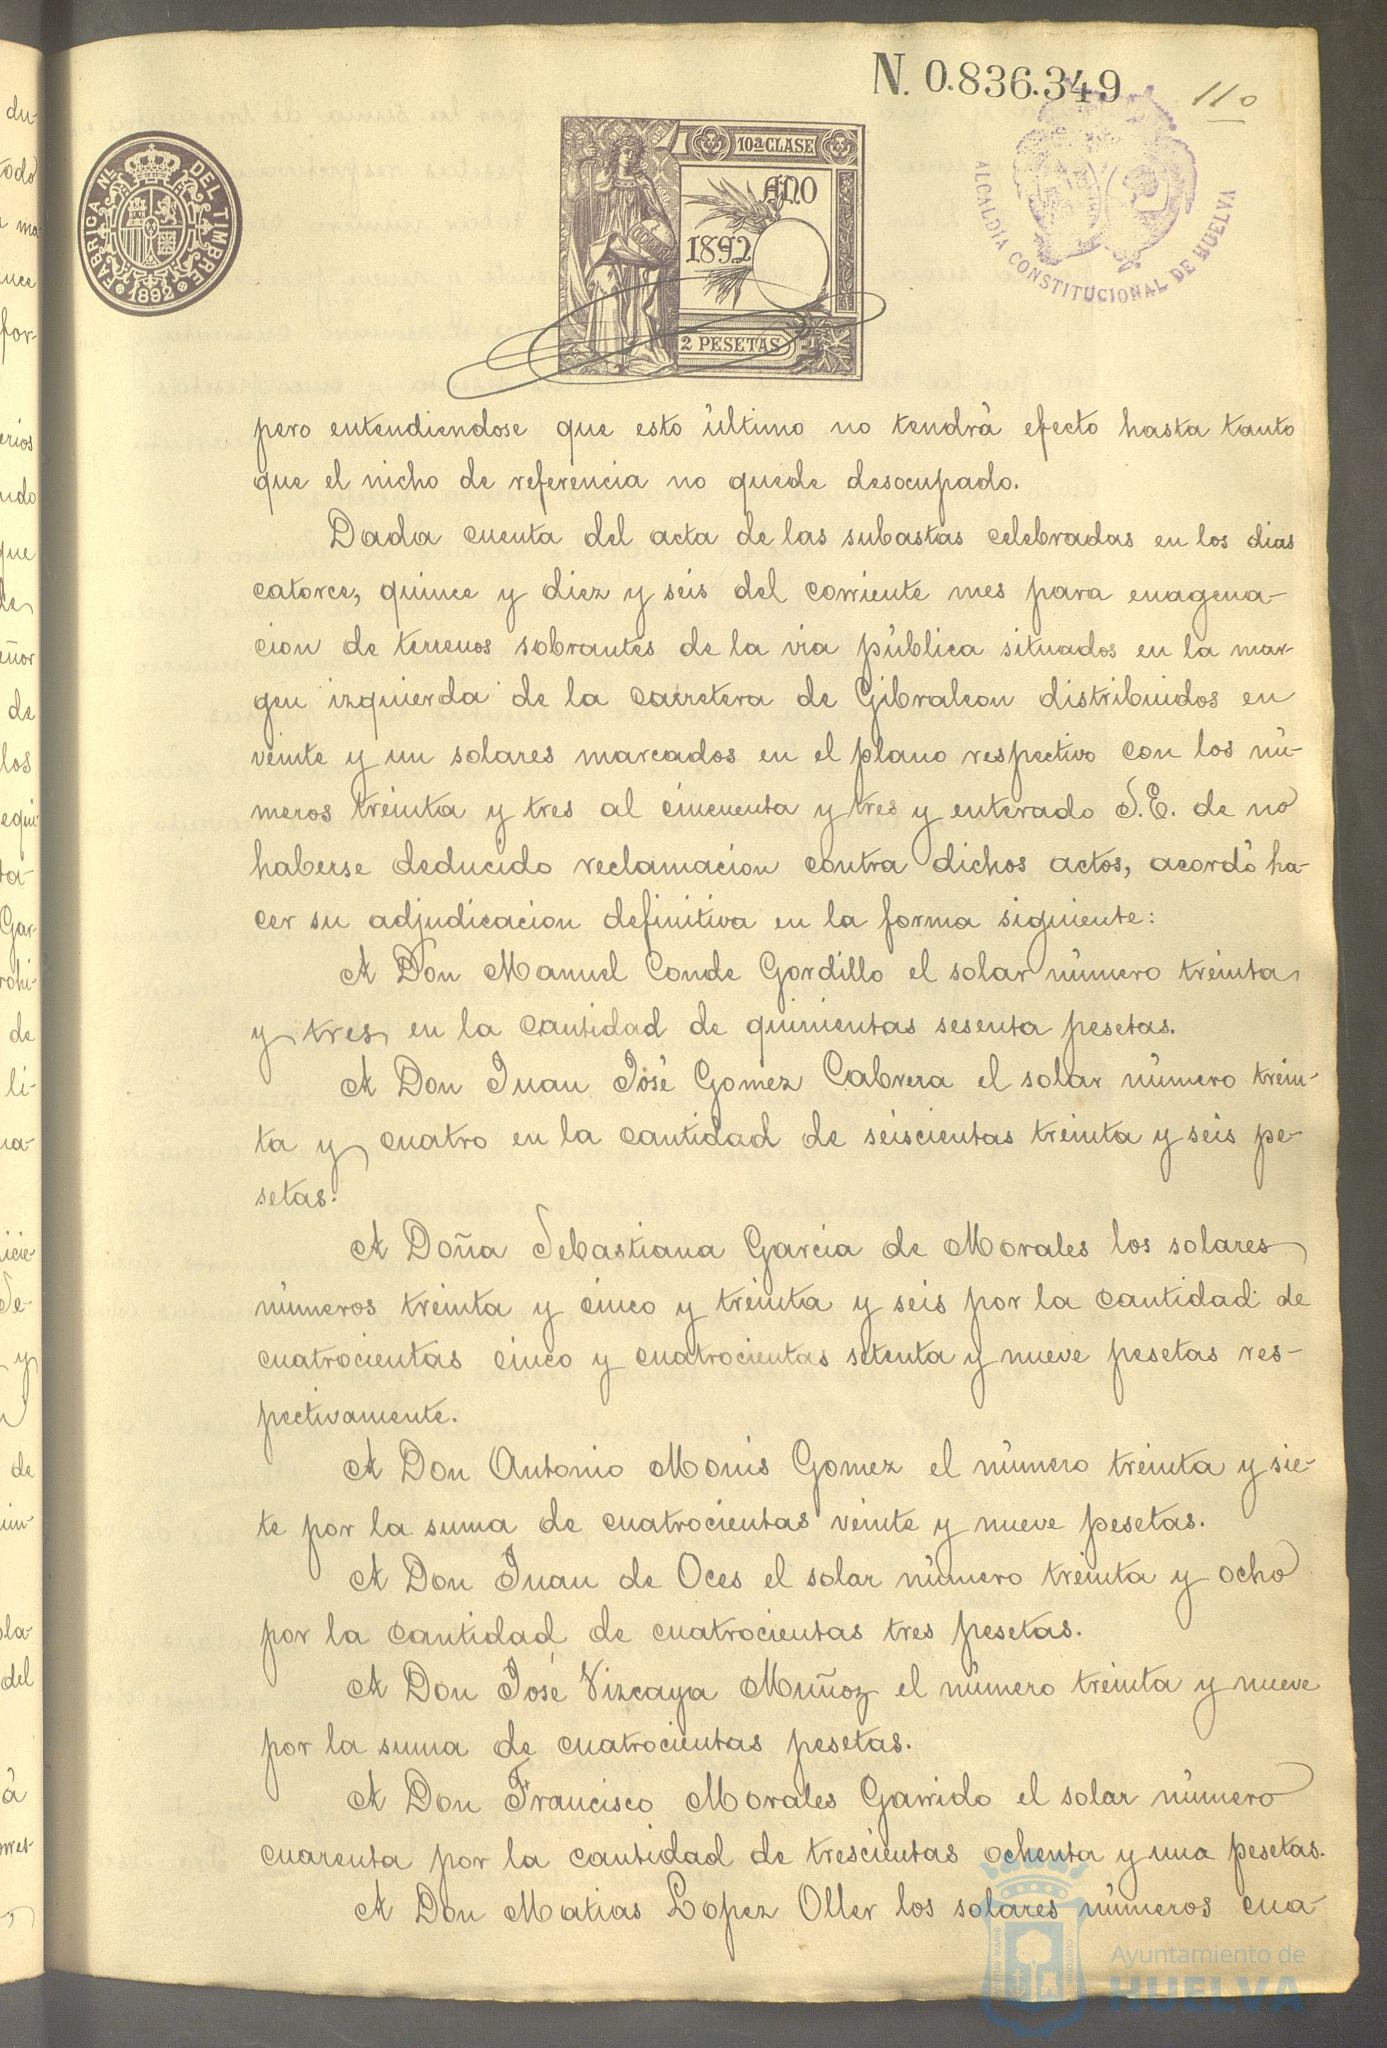 N. 0.836.349
110
FABRICA NL. DEL TIMBRE
1892
10ª CLASE
AÑO
1892
2 PESETAS
ALCALDIA CONSTITUCIONAL DE HUELVA
pero entendiendose que esto último no tendrá efecto hasta tanto
que el nicho de referencia no quede desocupado.
Dada cuenta del acta de las subastas celebradas en los dias
catorce, quince y diez y seis del corriente mes para enagena-
cion de terrenos sobrantes de la via pública situados en la mar-
gen izquierda de la carretera de Gibraleon distribuidos en
veinte y un solares marcados en el plano respectivo con los nú-
meros treinta y tres al cincuenta y tres y enterado S.E. de no
haberse deducido reclamacion contra dichos actos, acordó ha-
cer su adjudicacion definitiva en la forma siguiente:
A Don Manuel Conde Gordillo el solar número treinta
y tres en la cantidad de quinientas sesenta pesetas.
A Don Juan José Gomez Cabrera el solar número trein-
ta y cuatro en la cantidad de seiscientas treinta y seis pe-
setas.
A Doña Sebastiana Garcia de Morales los solares
números treinta y cinco y treinta y seis por la cantidad de
cuatrocientas cinco y cuatrocientas setenta y nueve pesetas res-
pectivamente.
A Don Antonio Monis Gomez el número treinta y sie-
te por la suma de cuatrocientas veinte y nueve pesetas.
A Don Juan de Oces el solar número treinta y ocho
por la cantidad de cuatrocientas tres pesetas.
A Don José Vizcaya Muñoz el número treinta y nueve
por la suma de cuatrocientas pesetas.
A Don Francisco Morales Garrido el solar número
cuarenta por la cantidad de trescientas ochenta y una pesetas.
A Don Matias Lopez Oller los solares números cua-
Ayuntamiento de
HUELVA